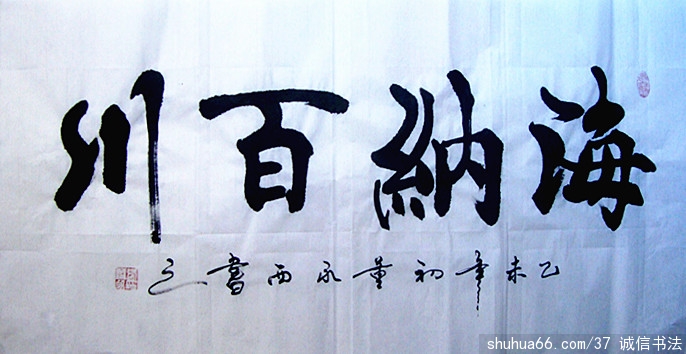 海納百川
乙未年初董永西書之
shuhua66.com/37 诚信书法